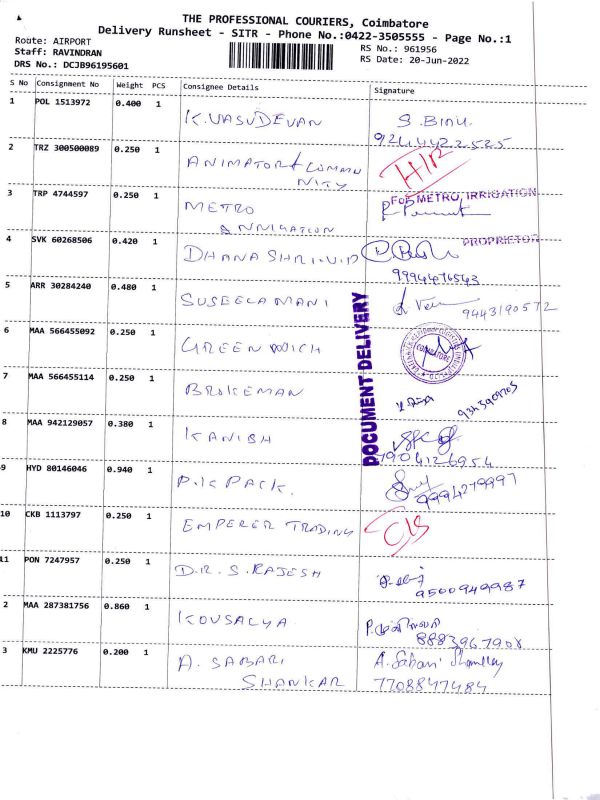 THE PROFESSIONAL COURIERS, Coimbatore
Delivery Runsheet - SITR - Phone No.:0422-3505555 - Page No.:1
Route: AIRPORT
RS No.: 961956
Staff: RAVINDRAN
RS Date: 20-Jun-2022
DRS No.: DCJB96195601
S No Consignment No Weight PCS Consignee Details Signature
1 POL 1513972 0.400 1 K.VASUDEVAN S. BINU
2 TRZ 300500089 0.250 1 ANIMATOR COMMU
NITY
3 TRP 4744597 0.250 1 METRO FOR METRO IRRIGATION
4 SVK 60268506 0.420 1 DHANASHRI.V.P PROPRIETOR
9994476543
5 ARR 30284240 0.480 1 SUSEELAMANI 9443190572
6 MAA 566455092 0.250 1 GREENWICH
COIMBATORE
DOCUMENT DELIVERY
7 MAA 566455114 0.250 1 BROKEMAN
8 MAA 942129057 0.380 1 KANISH
7904126954
9 HYD 80146046 0.940 1 P.K PACK.
9994279997
10 CKB 1113797 0.250 1 EMPERER TRADING C/S
11 PON 7247957 0.250 1 D.R.S.RAJESH
9500949987
2 MAA 287381756 0.860 1 KOUSALYA
8883967908
3 KMU 2225776 0.200 1 A. SABARI A. Sabari
SHANKAR 7708847484